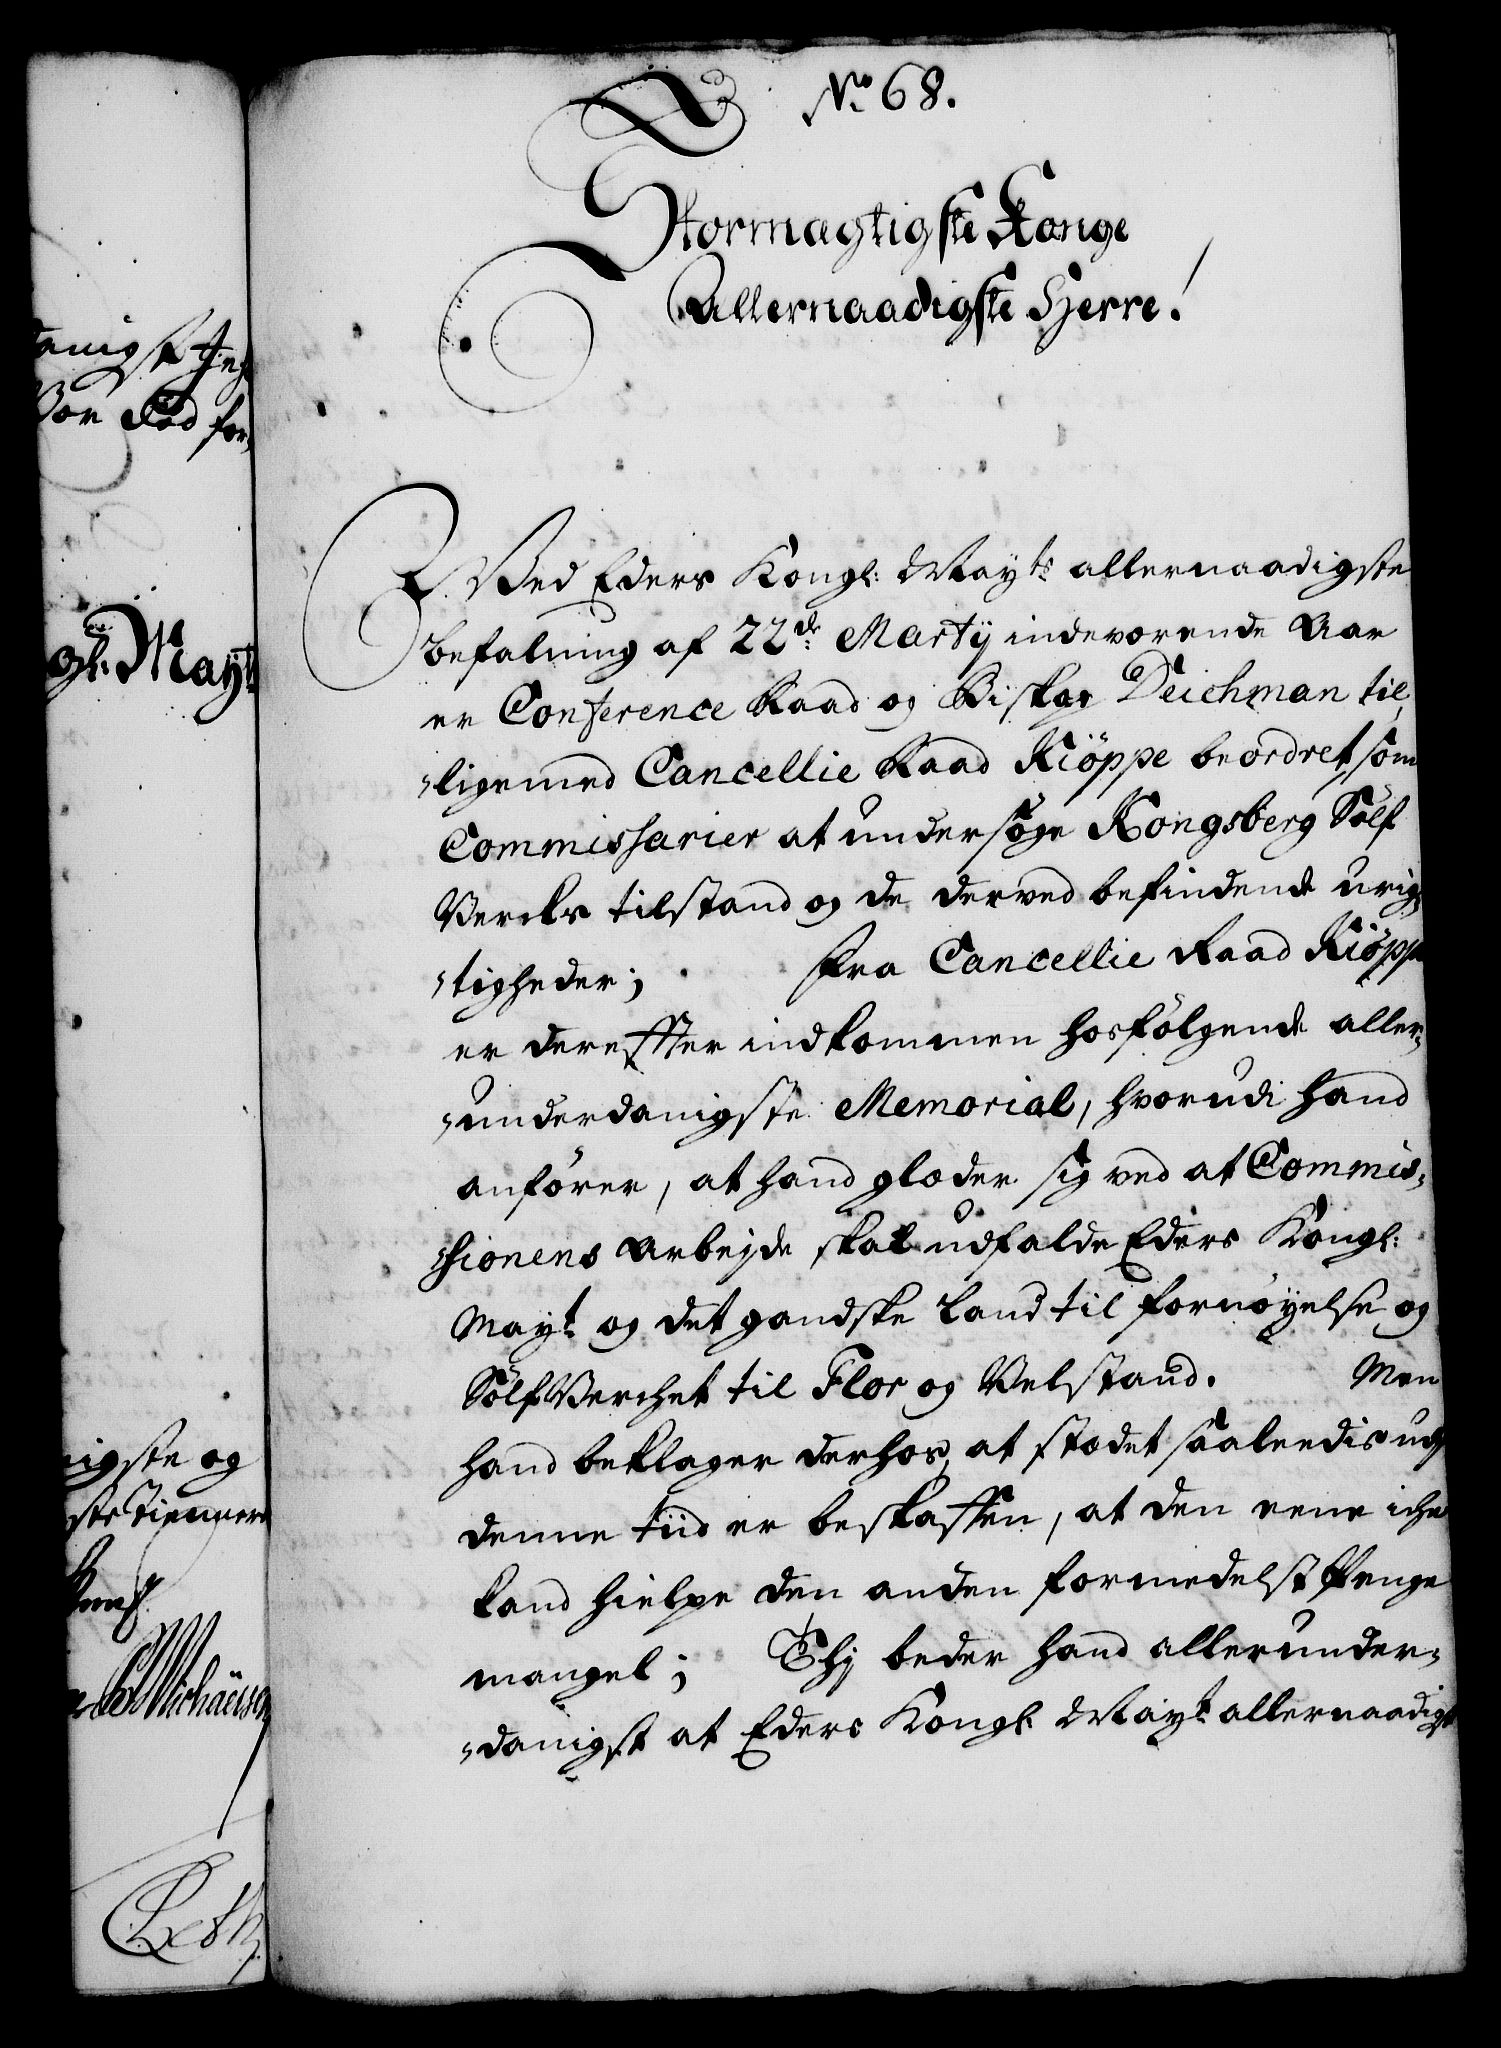 No 68.
Stormagtigste Konge
Allernaadigste Herre!
Ved Eders Kongl: Mayts allernaadigste
befalning af 22de Martij indeværende Aar
er Conference Raad og Biskop Deichman til,
,ligemed Cancellie Raad Kiöppe beordret, som
Commissarier at undersöge Kongsberg Sölf
Vercks tilstand og de derved befindende urig,
,tigheder; Fra Cancellie Raad Kiöppe
er derefter indkommen hosfölgende aller,
,underdanigste Memorial, hvorudi hand
anförer, at hand glæder sig ved at Commis,
,sionens Arbejde skal udfalde Eders Kongl:
Mayt og det gandske Land til fornöyelse og
SölfVerchet til Flor og Velstand. Men
hand beklager derhos, at stædet saaleedis udj
denne tiid er beskaffen, at den eene iche
kand hielpe den anden formedelst Penge
mangel; Thj beder hand allerunder,
,danigst at Eders Kongl: Mayt allernaadigst
danigst
for,
gl: Mayts
nigste og
ste Tiennere